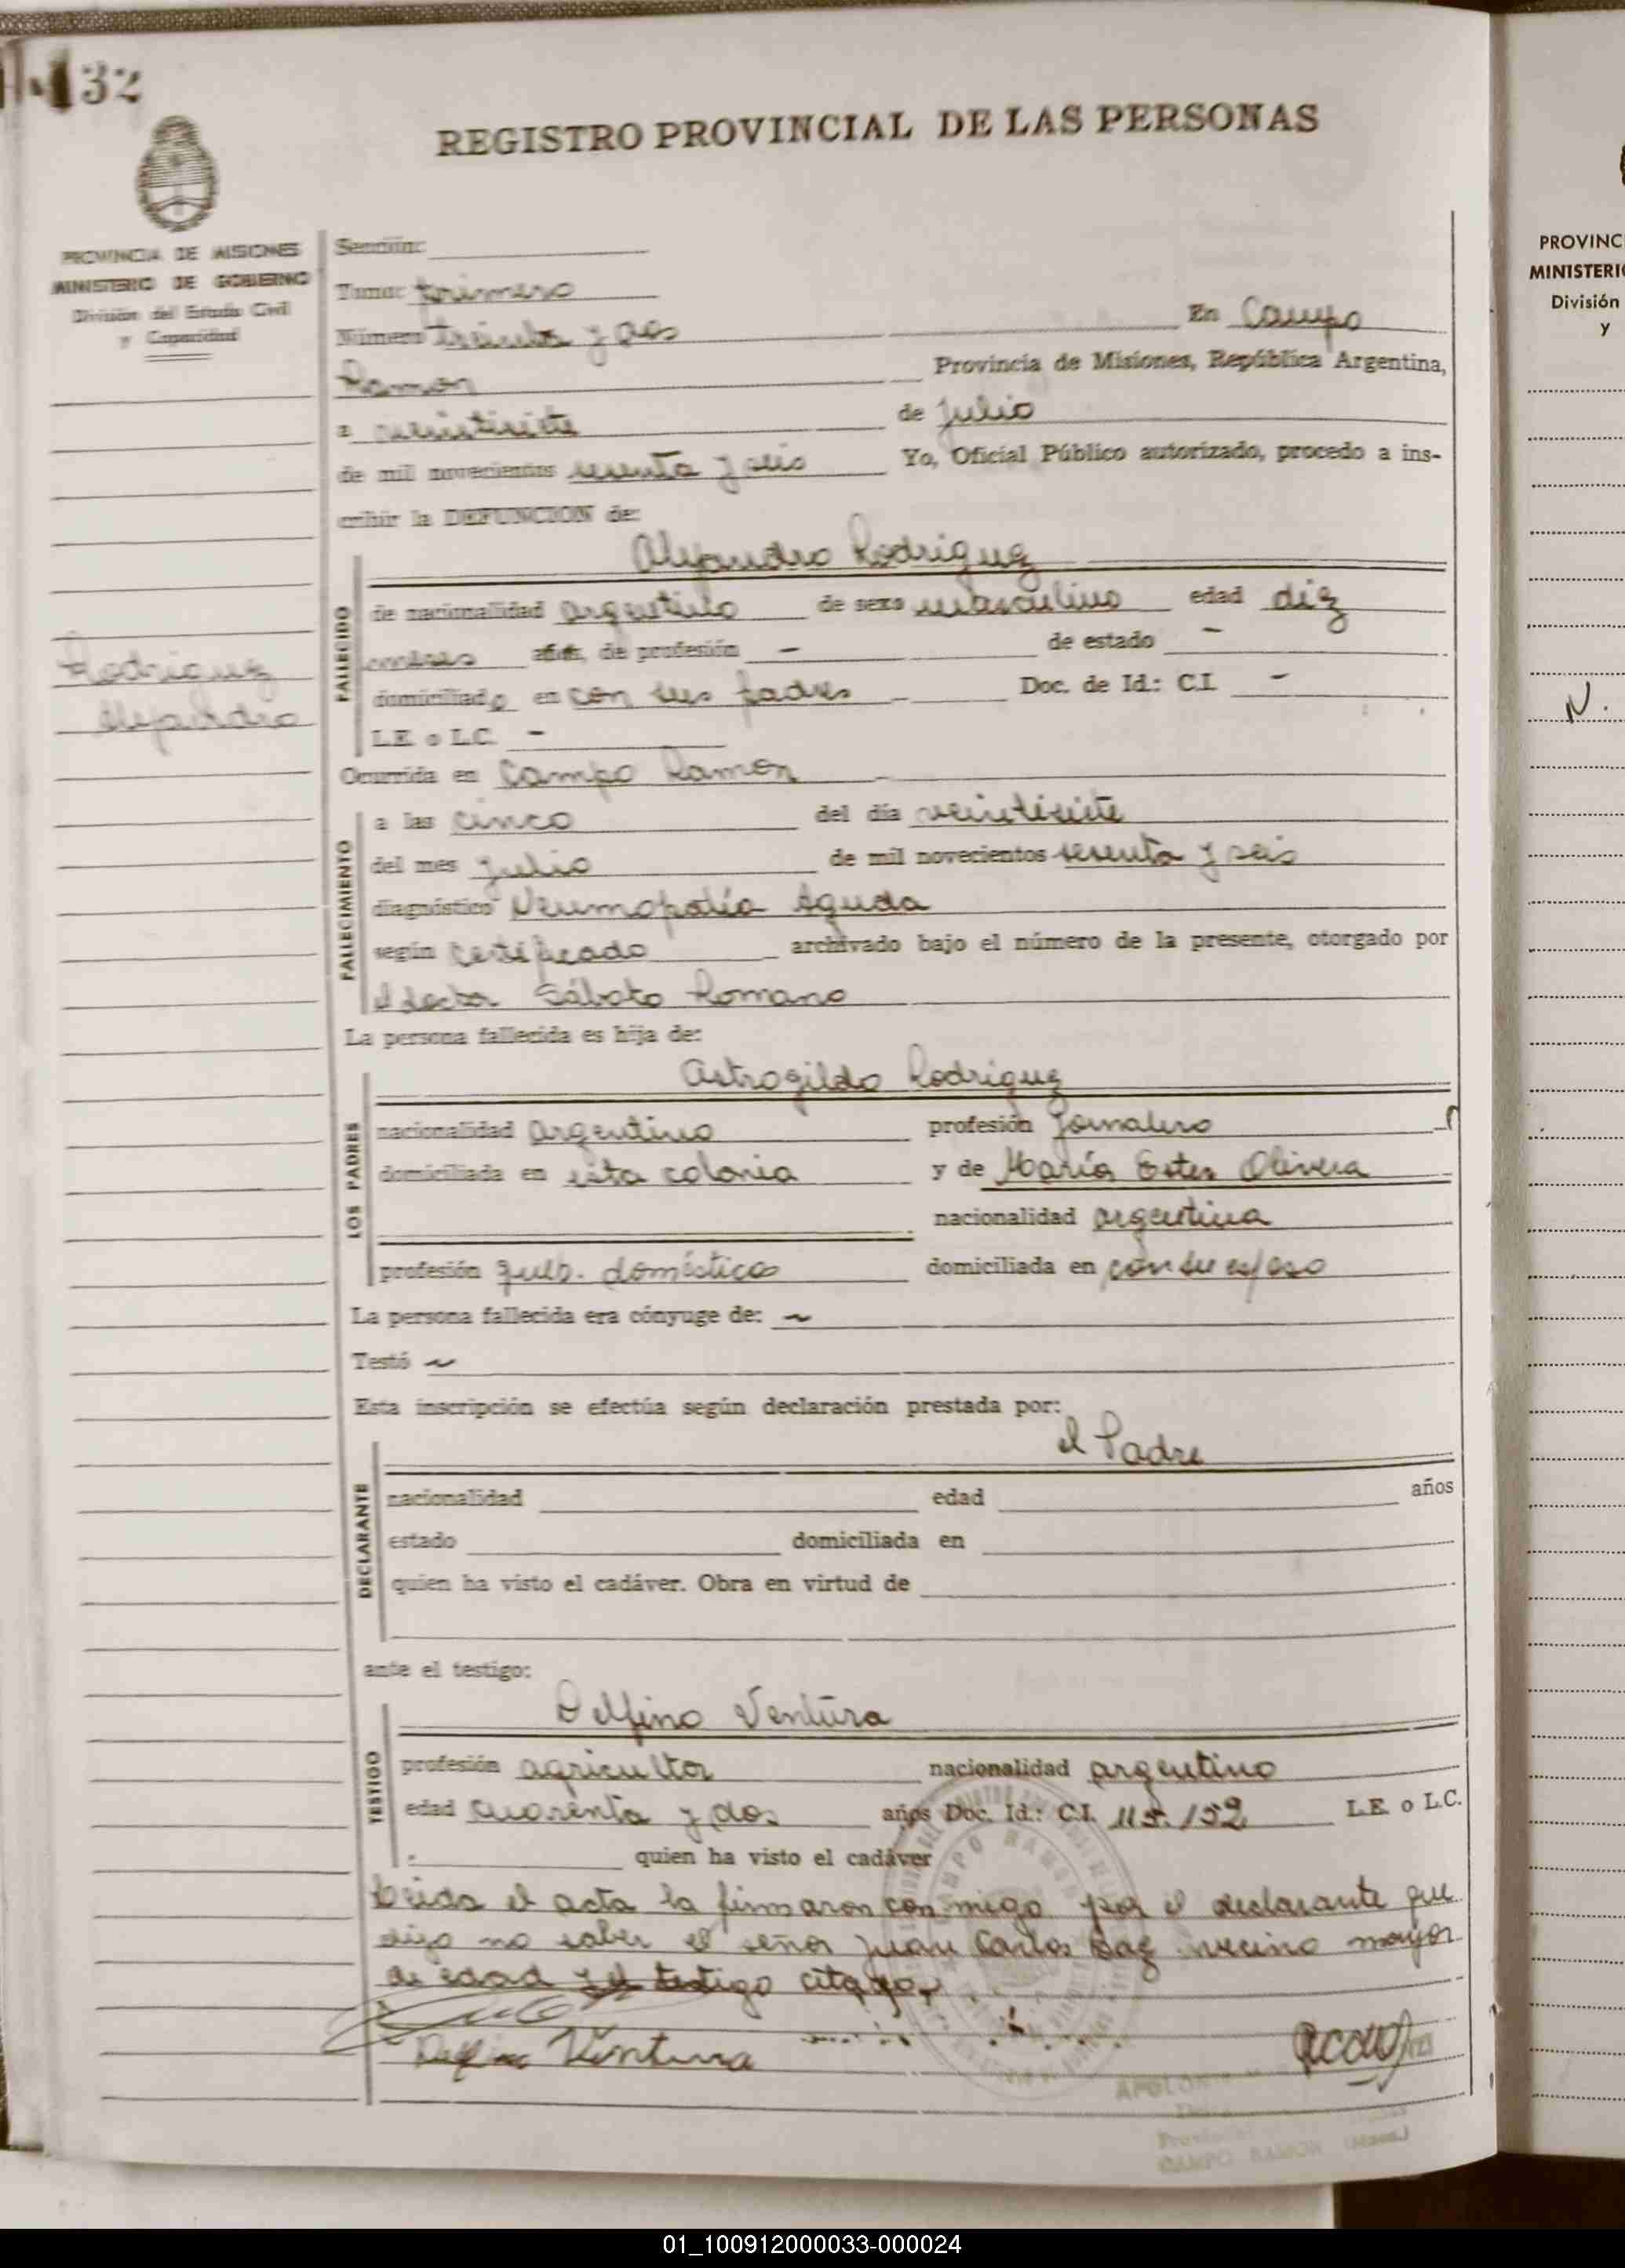 32
REGISTRO PROVINCIAL DE LAS PERSONAS
PROVINCIA DE MISIONES
MINISTERIO DE GOBIERNO
División del Estado Civil
y Capacidad
Rodriguez
Alejandro
Sección:
Tomo: primero
Número treinta y dos
En Campo
Ramon Provincia de Misiones, República Argentina,
a veintisiete de Julio
de mil novecientos sesenta y seis Yo, Oficial Público autorizado, procedo a ins-
cribir la DEFUNCION de:
Alejandro Rodriguez
FALLECIDO
de nacionalidad argentino de sexo masculino edad diez
meses años, de profesión - de estado -
domiciliado en con sus padres - Doc. de Id.: C.I. -
L.E. o L.C. -
Ocurrida en Campo Ramon
FALLECIMIENTO
a las cinco del día veintisiete
del mes Julio de mil novecientos sesenta y seis
diagnóstico Neumopatía Aguda
según certificado archivado bajo el número de la presente, otorgado por
el doctor Sábato Romano
La persona fallecida es hija de:
Astrogildo Rodriguez
LOS PADRES
nacionalidad argentino profesión Jornalero
domiciliada en esta colonia y de María Ester Olivera
nacionalidad argentina
profesión queh. domésticos domiciliada en con su esposo
La persona fallecida era cónyuge de: ~
Testó ~
Esta inscripción se efectúa según declaración prestada por:
el Padre
DECLARANTE
nacionalidad edad años
estado domiciliada en
quien ha visto el cadáver. Obra en virtud de
ante el testigo:
Delfino Ventura
TESTIGO
profesión agricultor nacionalidad argentino
edad cuarenta y dos años Doc. Id.: C.I. 115.152 L.E. o L.C.
quien ha visto el cadáver
Leida el acta la firmaron conmigo por el declarante que
dijo no saber el señor Juan Carlos vecino mayor
de edad y el testigo citado,
Delfino Ventura
CAMPO RAMON
PROVINC
MINISTERI
División
y
N.
01_100912000033-000024